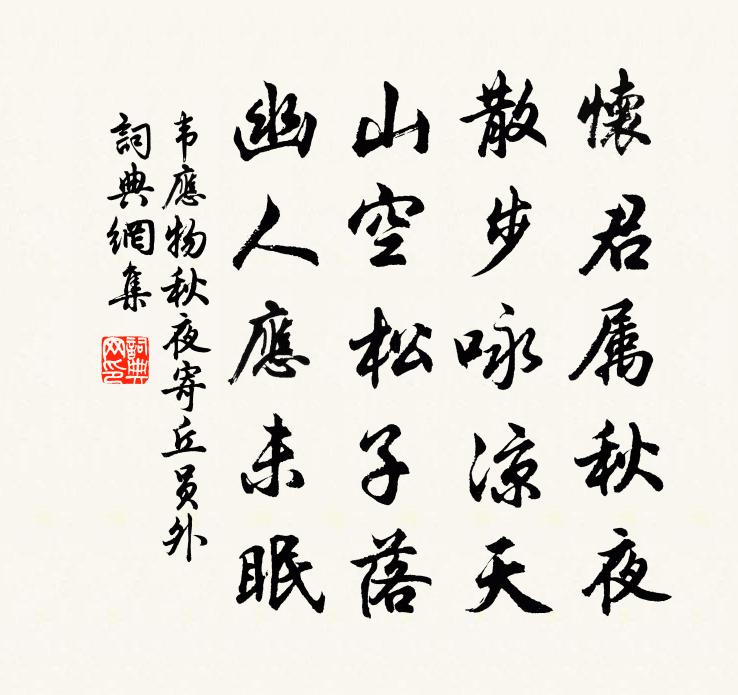 懷君属秋夜
散步咏凉天
山空松子落
幽人應未眠
韦應物秋夜寄丘员外
詞典網集
詞典网印